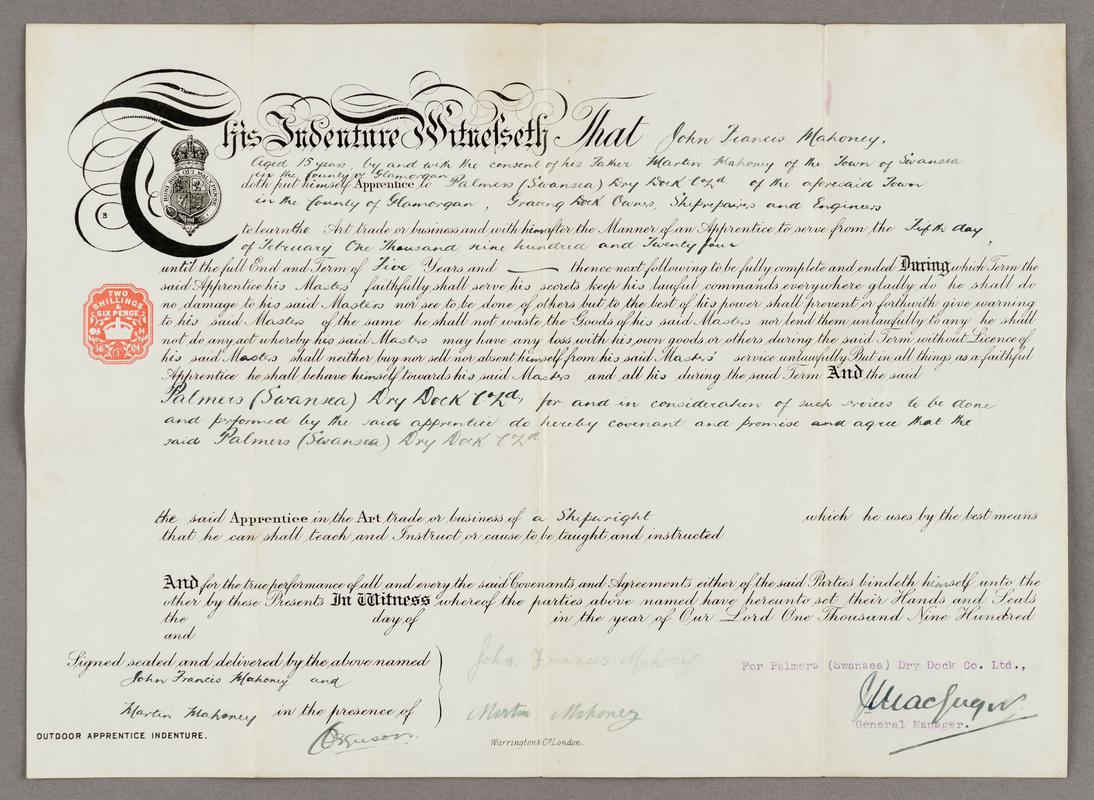 This Indenture Witnesseth That John Francis Mahoney,
Aged 15 years, by and with the consent of his Father Martin Mahoney of the Town of Swansea
in the County of Glamorgan
doth put himself Apprentice to Palmers (Swansea) Dry Dock Co Ld. of the aforesaid Town
in the County of Glamorgan, Graving Dock Owners, Shiprepairers and Engineers
to learn the Art trade or business, and with him after the Manner of an Apprentice to serve from the Fifth day
of February One Thousand nine hundred and Twenty four
until the full End and Term of Five Years and — thence next following to be fully complete and ended During which Term the
said Apprentice his Masters faithfully shall serve his secrets keep his lawful commands everywhere gladly do he shall do
no damage to his said Masters nor see to be done of others but to the best of his power shall prevent or forthwith give warning
to his said Masters of the same he shall not waste the Goods of his said Masters nor lend them unlawfully to any he shall
not do any act whereby his said Masters may have any loss with his own goods or others during the said Term without Licence of
his said Masters shall neither buy nor sell nor absent himself from his said Masters' service unlawfully. But in all things as a faithful
Apprentice he shall behave himself towards his said Masters and all his during the said Term And the said
Palmers (Swansea) Dry Dock Co Ld, for and in consideration of such services to be done
and performed by the said apprentice do hereby covenant and promise and agree that the
said Palmers (Swansea) Dry Dock Co Ld
the said Apprentice in the Art trade or business of a Shipwright which he uses by the best means
that he can shall teach and Instruct or cause to be taught and instructed
And for the true performance of all and every the said Covenants and Agreements either of the said Parties bindeth himself unto the
other by these Presents In Witness whereof the parties above named have hereunto set their Hands and Seals
the day of in the year of Our Lord One Thousand Nine Hundred
and
Signed sealed and delivered by the above named
John Francis Mahoney and
Martin Mahoney in the presence of
John Francis Mahoney
Martin Mahoney
For Palmers (Swansea) Dry Dock Co. Ltd.,
General Manager.
OUTDOOR APPRENTICE INDENTURE.
Warrington & Co. London.
TWO
SHILLINGS
&
SIX PENCE
HONI SOIT QUI MAL Y PENSE
B